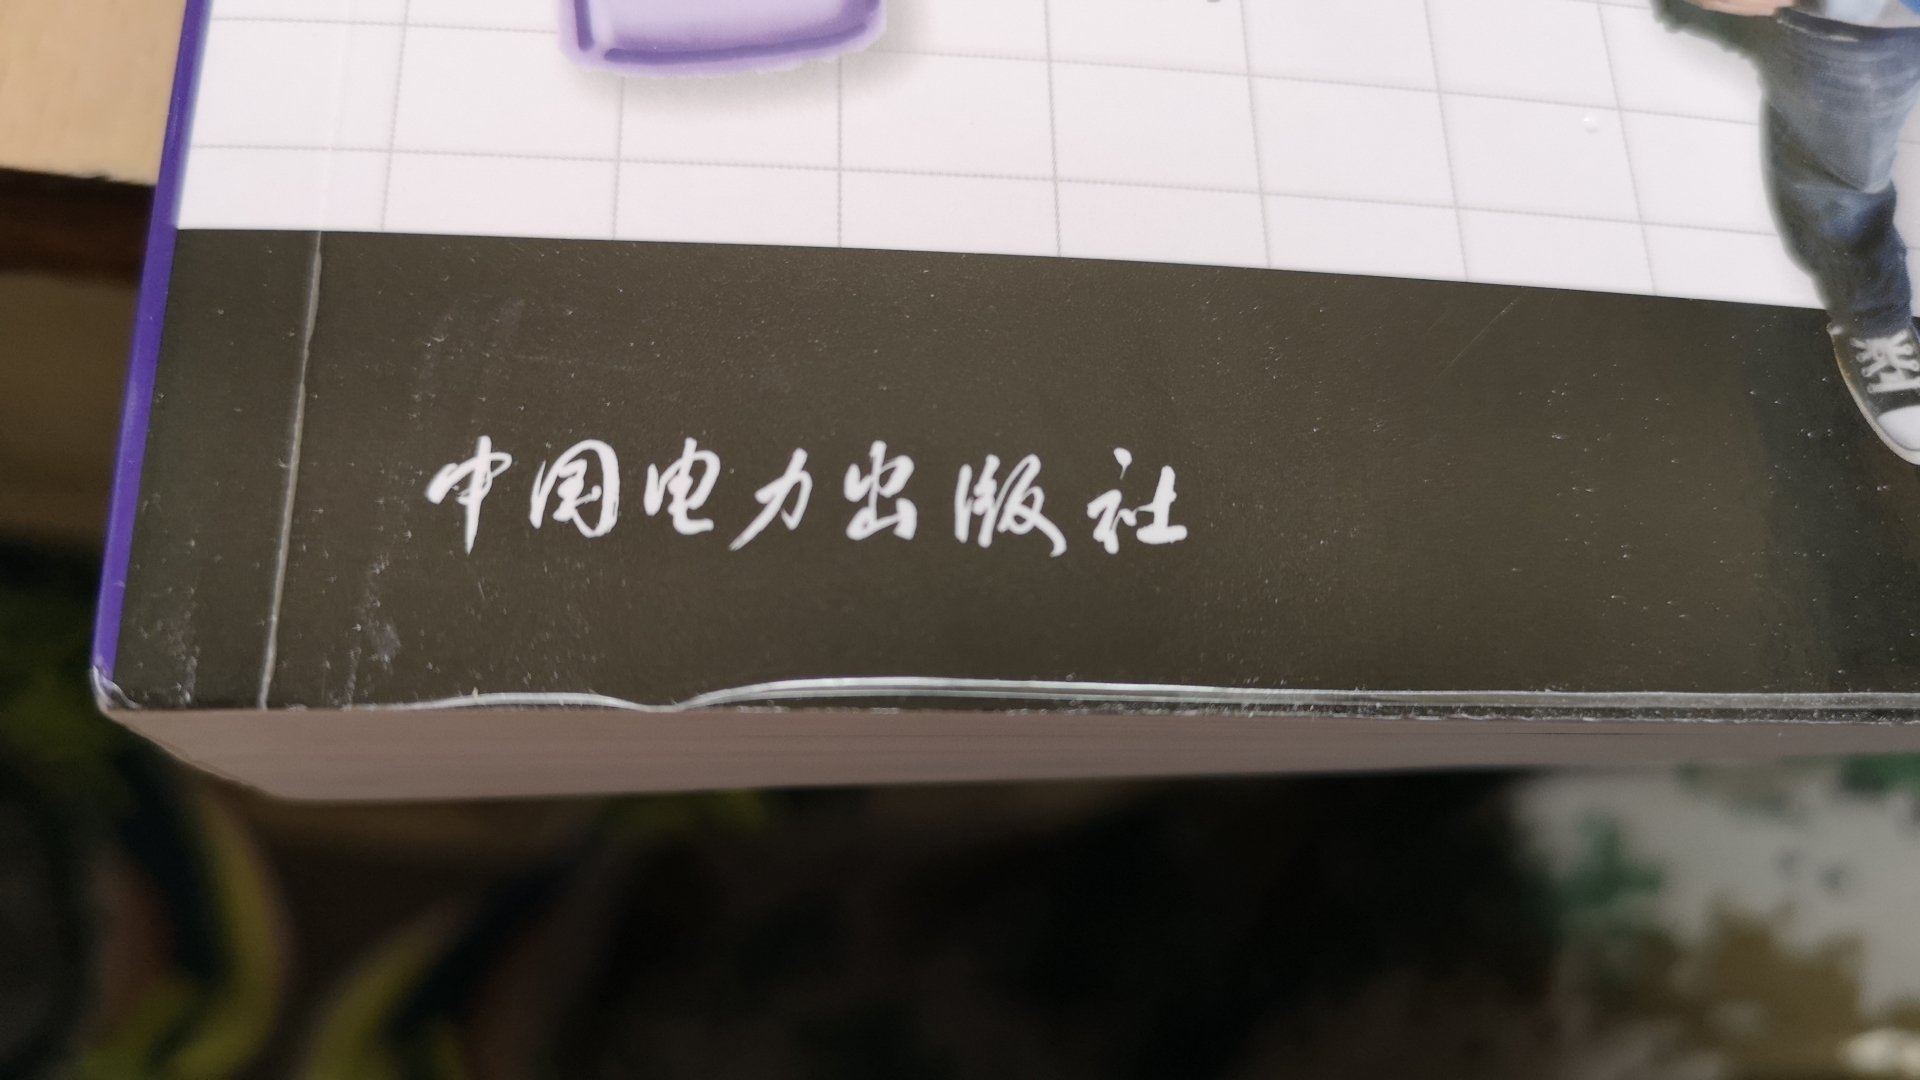 中国电力出版社